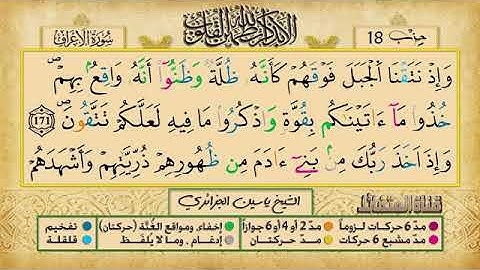 سُورَةُ الأَعْرَافِ
أَلَا بِذِكْرِ اللَّهِ تَطْمَئِنُّ الْقُلُوبُ
حِزْب 18
وَإِذْ نَتَقْنَا الْجَبَلَ فَوْقَهُمْ كَأَنَّهُ ظُلَّةٌ وَظَنُّوا أَنَّهُ وَاقِعٌ بِهِمْ
خُذُوا مَا ءَاتَيْنَاكُم بِقُوَّةٍ وَاذْكُرُوا مَا فِيهِ لَعَلَّكُمْ تَتَّقُونَ 171
وَإِذْ أَخَذَ رَبُّكَ مِنۢ بَنِي ءَادَمَ مِن ظُهُورِهِمْ ذُرِّيَّتِهِمْ وَأَشْهَدَهُمْ
الشيخ ياسين الجزائري
مدّ 6 حركات لزوماً مدّ 2 أو 4 أو 6 جوازاً إخفاء، ومواقع الغُنَّة (حركتان) تفخيم
مدّ مشبع 6 حركات مدّ حركتان إدغام، وما لا يُلفَظ قلقلة